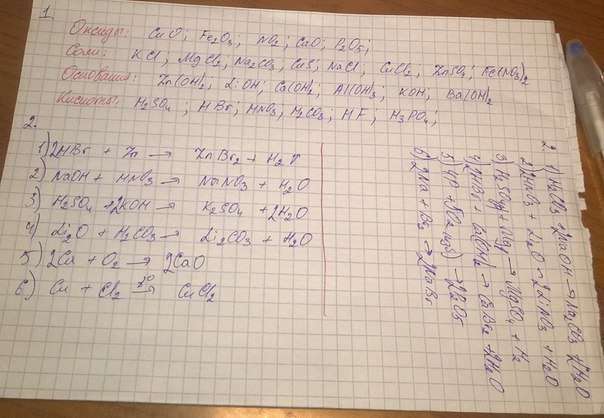 1.
Оксиды: CuO; Fe2O3; NO2; CaO; P2O5;
Соли: KCl; MgCl2; Na2CO3; CuS; NaCl; CuCl2; ZnSO4; Fe(NO3)2
Основания: Zn(OH)2; LiOH; Ca(OH)2; Al(OH)3; KOH; Ba(OH)2
Кислоты: H2SO4; HBr; HNO3; H2CO3; HF; H3PO4;
2.
1) 2HBr + Zn → ZnBr2 + H2↑
2) NaOH + HNO3 → NaNO3 + H2O
3) H2SO4 + 2KOH → K2SO4 + 2H2O
4) Li2O + H2CO3 → Li2CO3 + H2O
5) 2Ca + O2 → 2CaO
6) Cu + Cl2 t° → CuCl2
2. 1) H2CO3 2NaOH → Na2CO3 + 2H2O
2) 2HNO3 + Li2O → 2LiNO3 + H2O
3) H2SO4 + Mg → MgSO4 + H2
4) 2HBr + Ba(OH)2 → BaBr2 + 2H2O
5) 4P + 5O2 → 2P2O5
6) 2Na + Br2 → 2NaBr